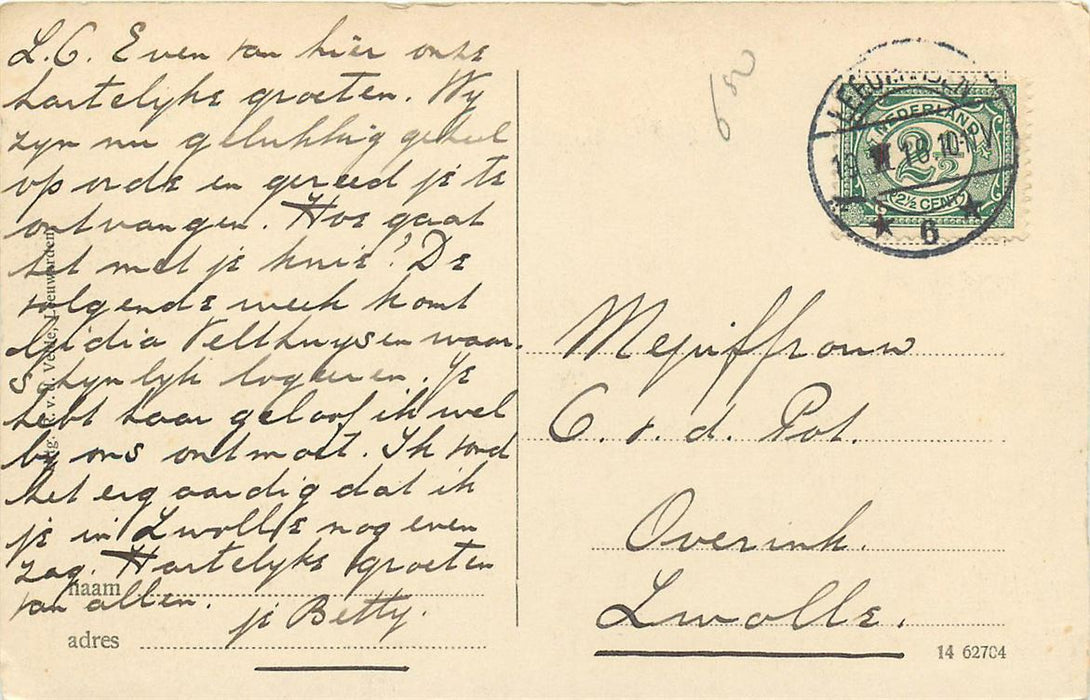 L.C. Even van hier onze
hartelyke groeten. Wy
zyn nu gelukkig geheel
op orde en gereed je te
ontvangen. Hoe gaat
het met je knie? De
volgende week komt
Lydia Velthuysen waar-
schynlyk logeeren. Je
hebt haar geloof ik wel
by ons ontmoet. Ik vond
het erg aardig dat ik
je in Zwolle nog even
zag. Hartelyke groeten
van allen.
je Betty.
naam
adres
v. d. Velde, Leeuwarden
650
LEEUWARDEN
10-11
6
NEDERLAND
2½
2½ CENT
Mejuffrouw
C. v. d. Pot.
Overink.
Zwolle.
14 62704